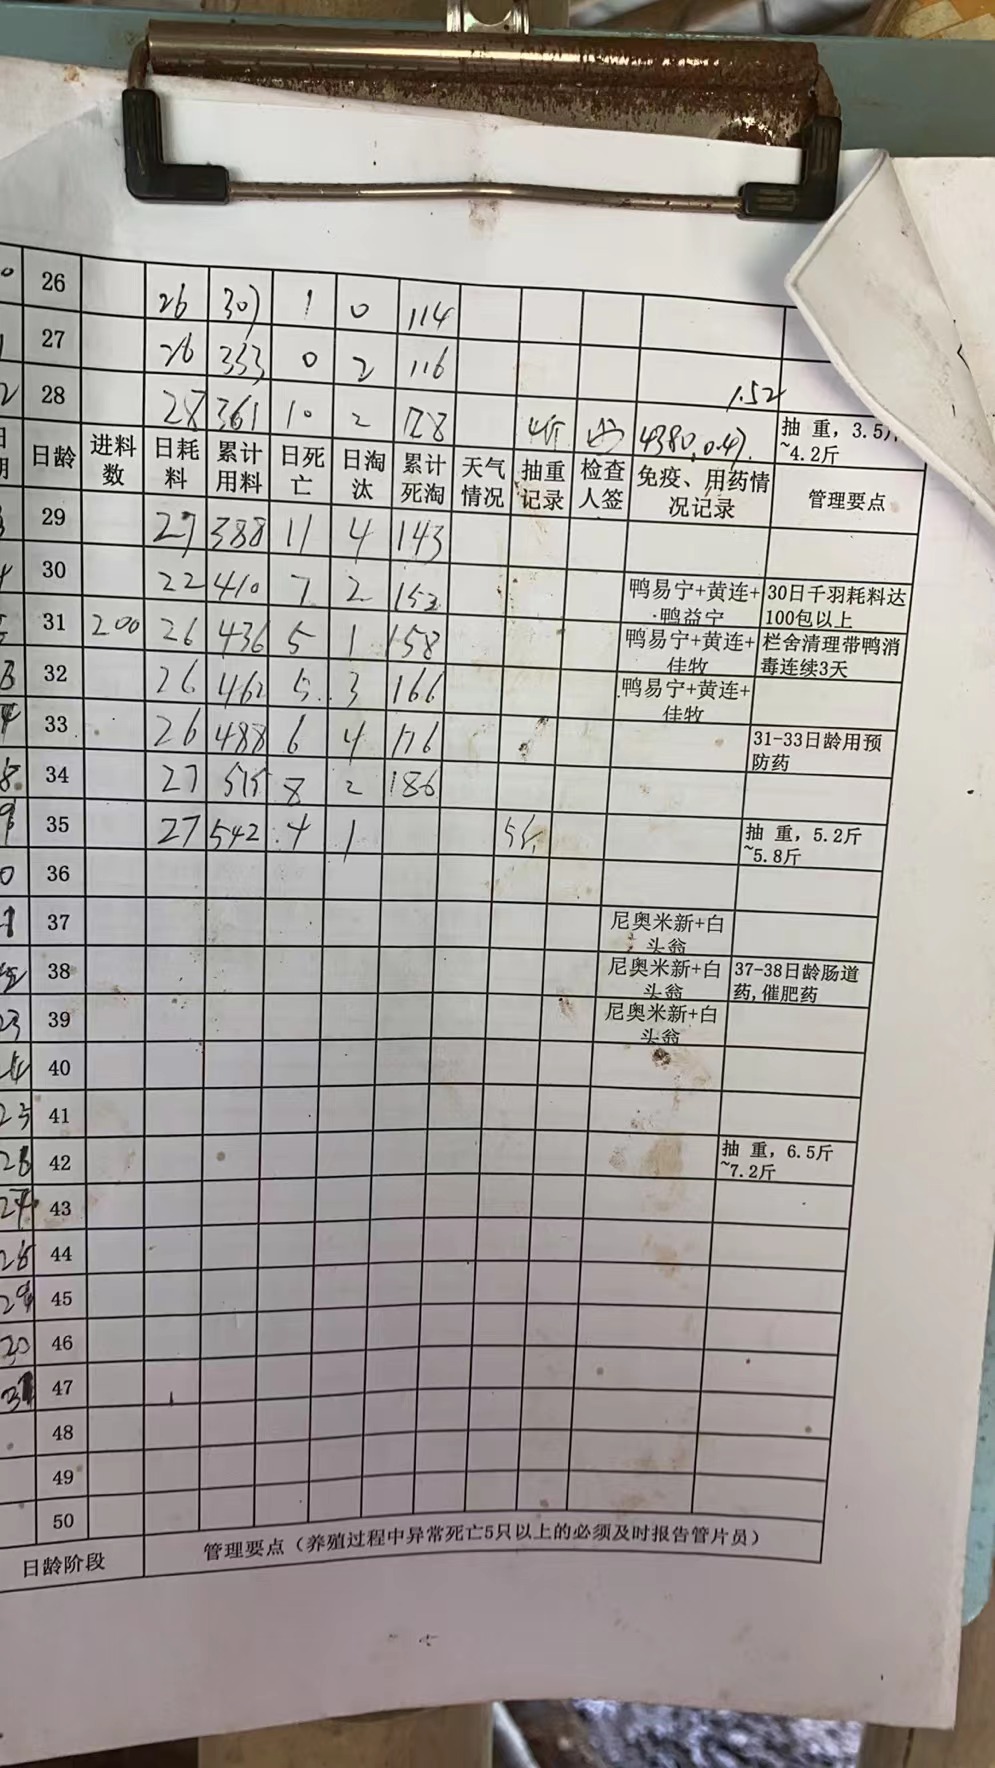 26 26 307 1 0 114
27 26 333 0 2 116
1.52
28 28 361 10 2 128 4斤 4380, 0.47. 抽 重, 3.5斤
~4.2斤
日龄 进料数 日耗料 累计用料 日死亡 日淘汰 累计死淘 天气情况 抽重记录 检查人签 免疫、用药情况记录 管理要点
29 27 388 11 4 143
30 22 410 7 2 152 鸭易宁+黄连+鸭益宁 30日千羽耗料达100包以上
31 200 26 436 5 1 158 鸭易宁+黄连+佳牧 栏舍清理带鸭消毒连续3天
32 26 462 5 3 166 鸭易宁+黄连+佳牧
33 26 488 6 4 176 31-33日龄用预防药
34 27 515 8 2 186
35 27 542 4 1 5斤 抽 重, 5.2斤
~5.8斤
36
37 尼奥米新+白头翁
38 尼奥米新+白头翁 37-38日龄肠道药,催肥药
39 尼奥米新+白头翁
40
41
42 抽 重, 6.5斤
~7.2斤
43
44
45
46
47
48
49
50
日龄阶段 管理要点（养殖过程中异常死亡5只以上的必须及时报告管片员）